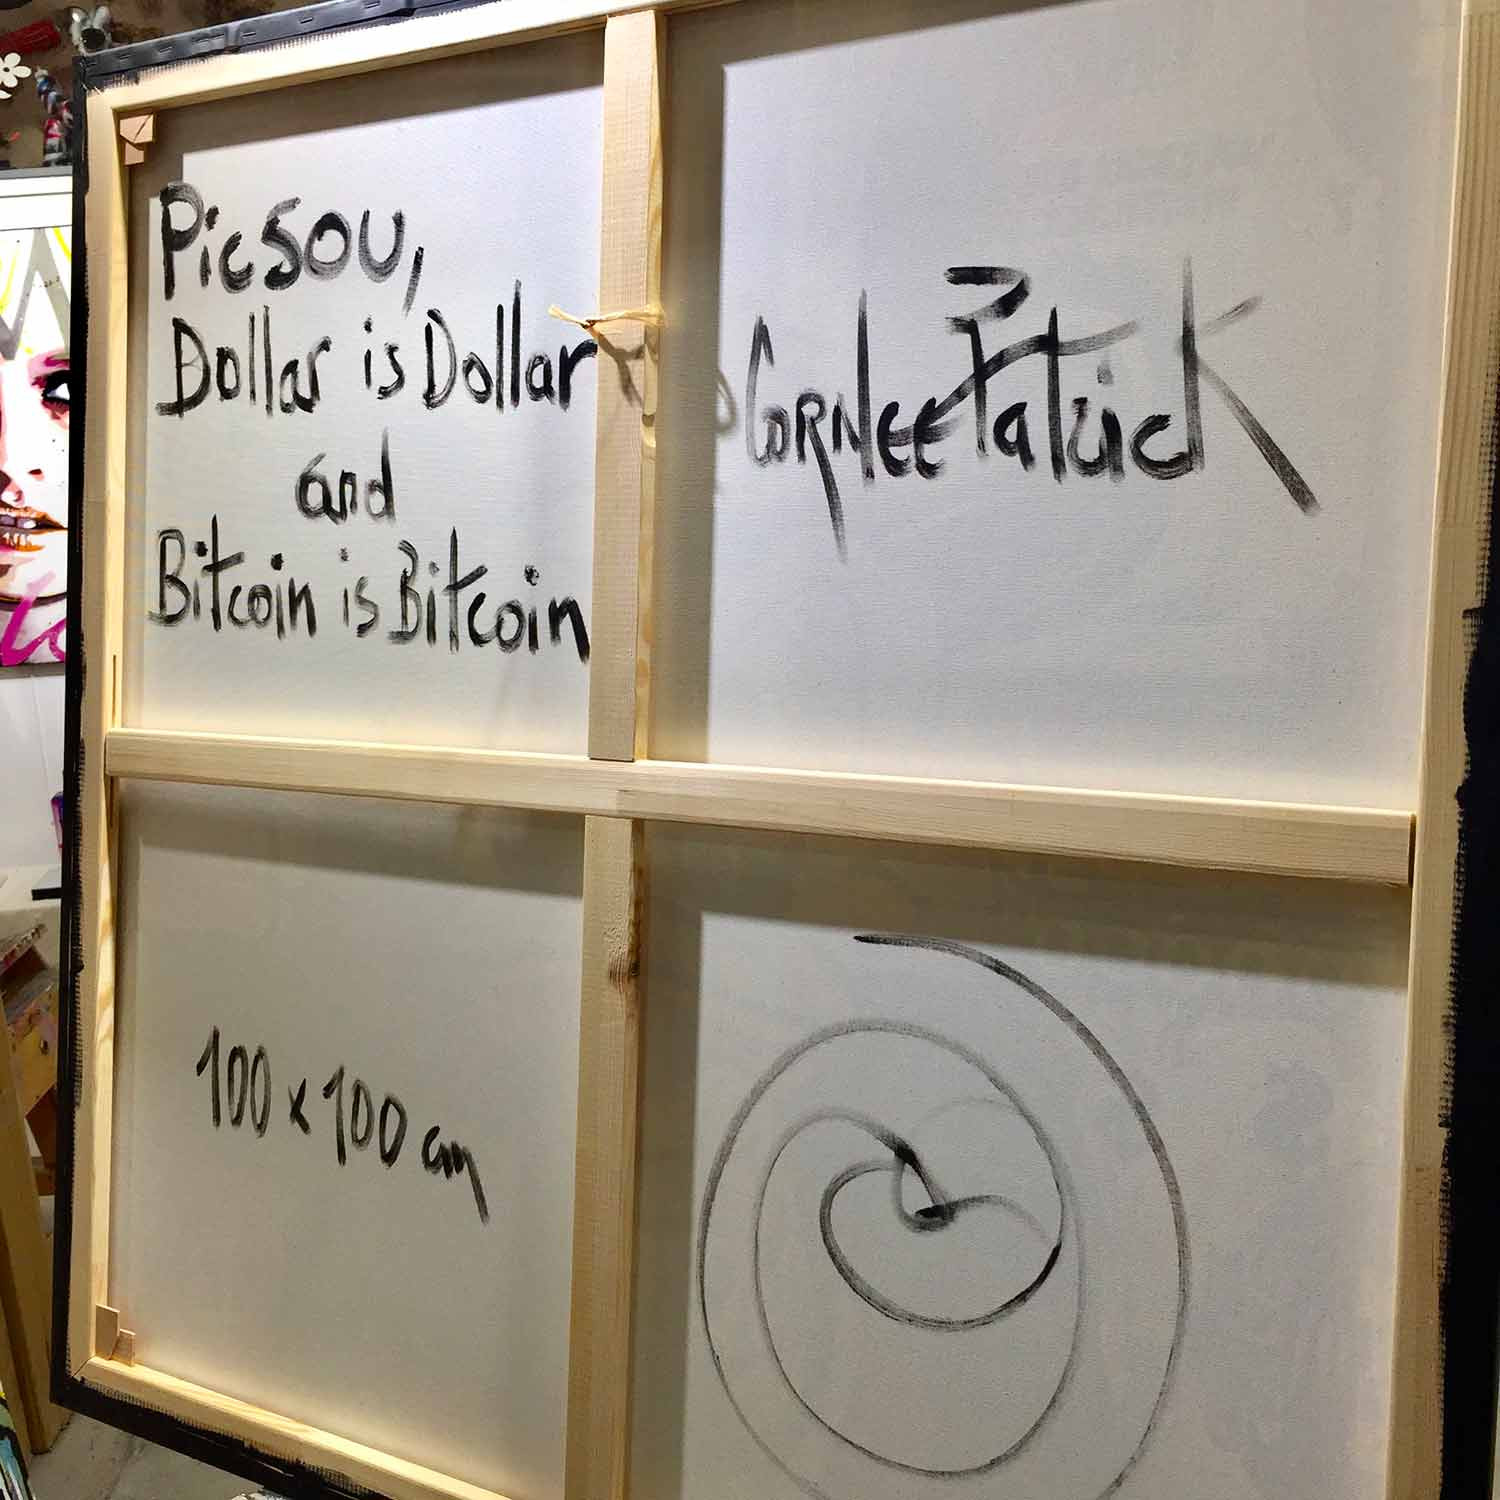 Picsou,
Dollar is Dollar
and
Bitcoin is Bitcoin
Cornee Patrick
100 x 100 cm